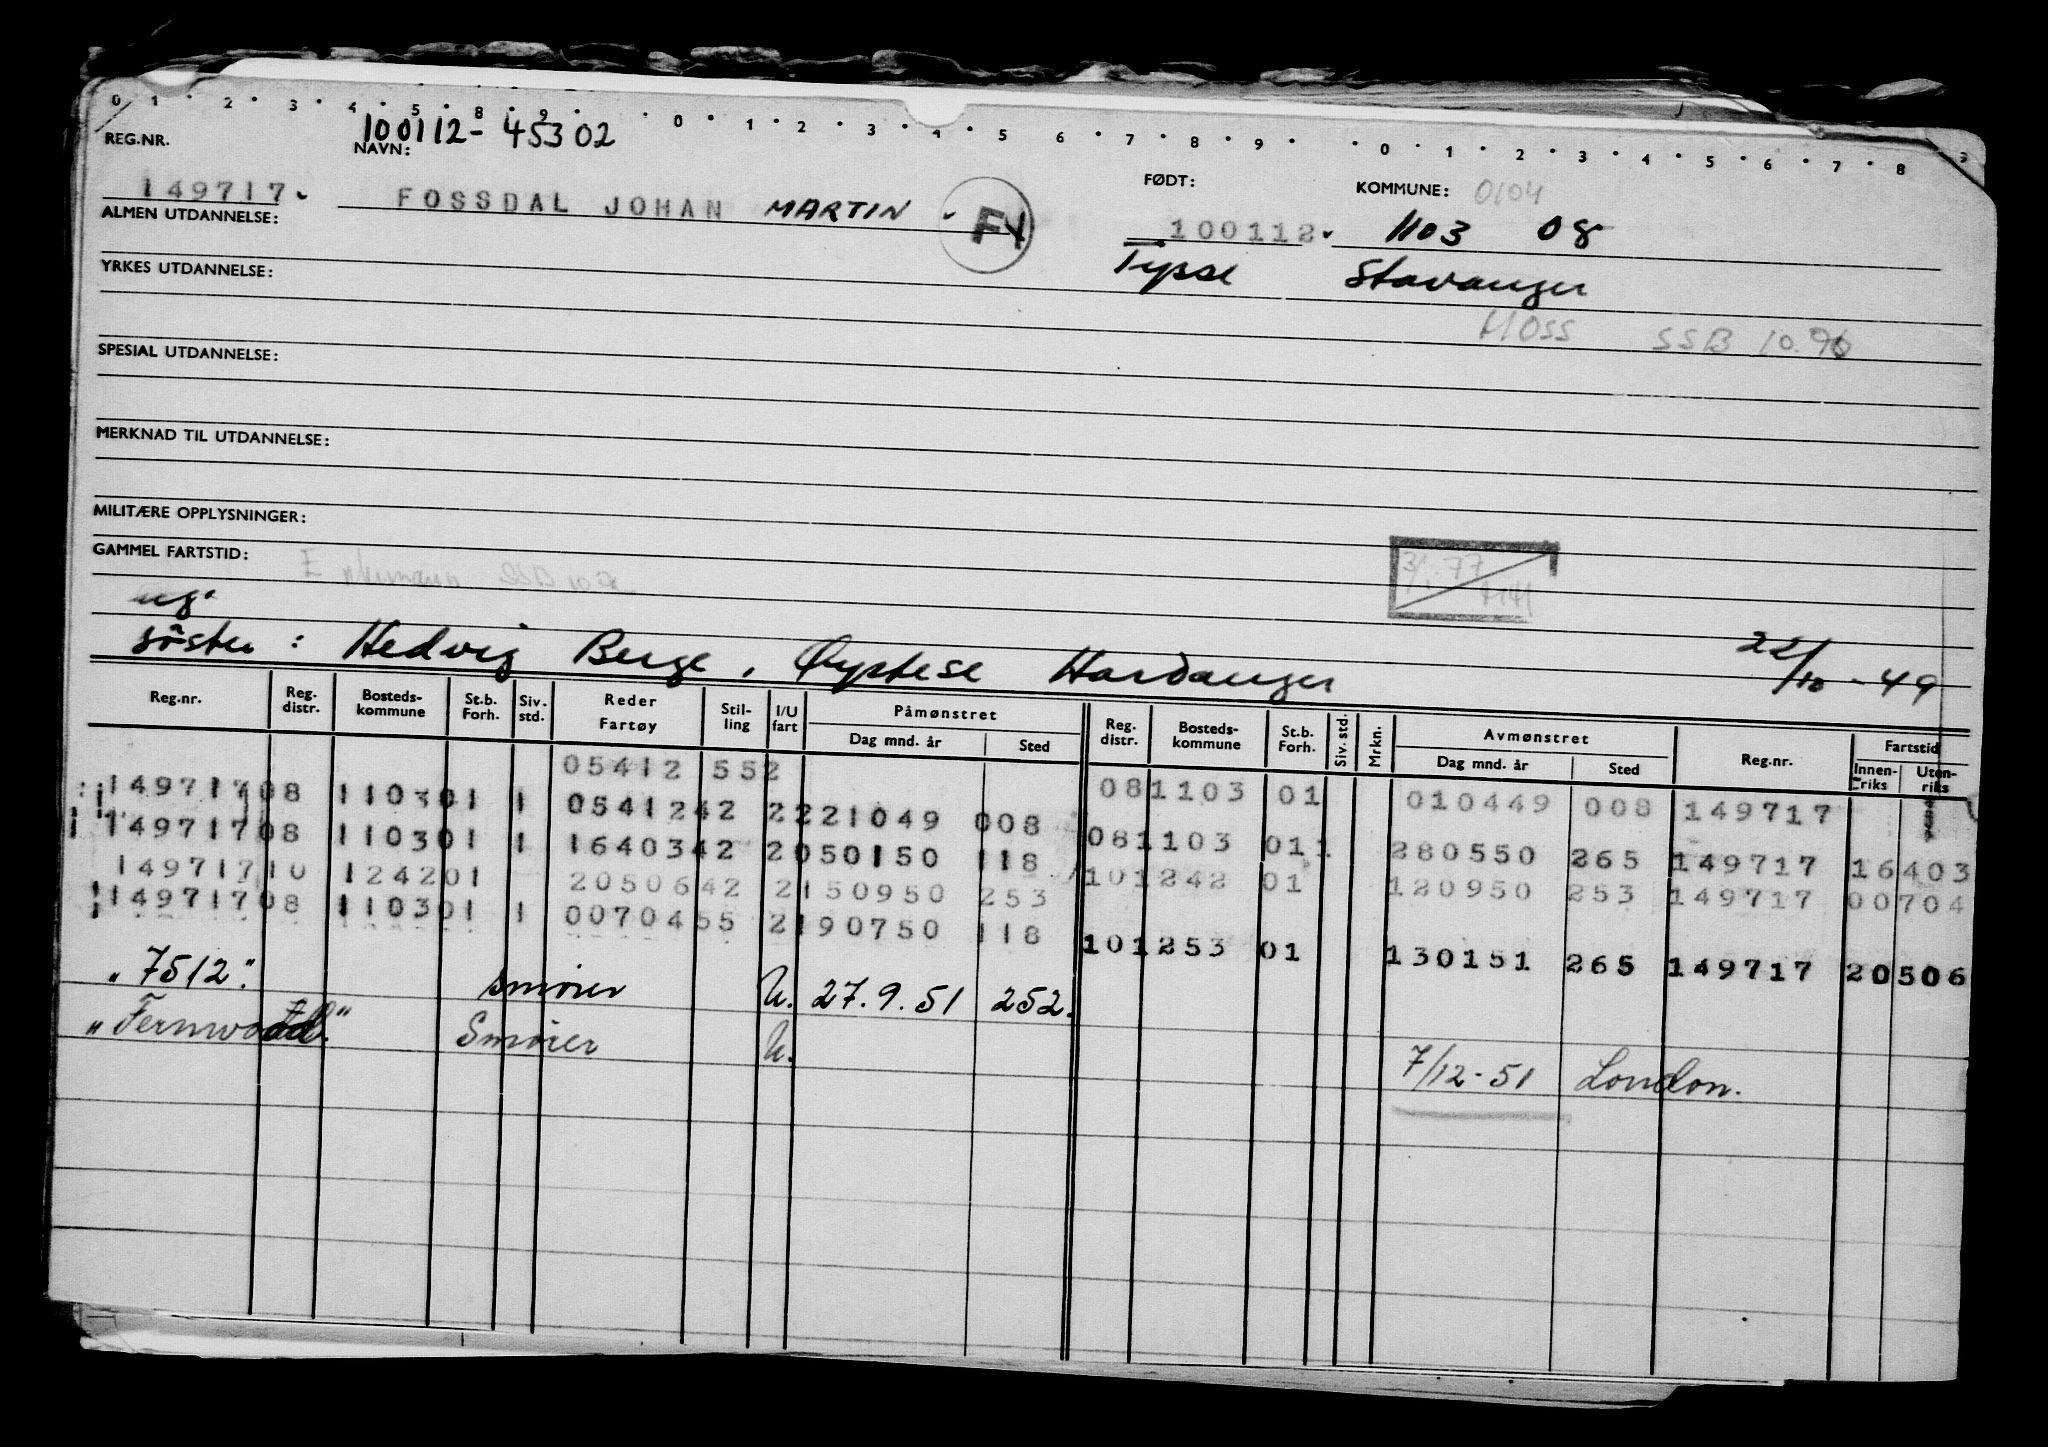 0 1 2 3 4 5 8 9 0 1 2 3 4 5 6 7 8 9 0 1 2 3 4 5 6 7 8
REG.NR. NAVN: 100112-45302 FØDT: KOMMUNE: 0104
149717 FOSSDAL JOHAN MARTIN 100112 1103 08
ALMEN UTDANNELSE:
Tysse Stavanger
YRKES UTDANNELSE:
MOSS SSB 10.76
SPESIAL UTDANNELSE:
MERKNAD TIL UTDANNELSE:
MILITÆRE OPPLYSNINGER:
GAMMEL FARTSTID:
ug.
söster: Hedvig Berge, Øystese Hardanger 22/10-49
Reg.nr. Reg. distr. Bosteds-kommune St.b. Forh. Siv. std. Reder Fartøy Stil-ling I/U fart Påmønstret Dag mnd. år Sted Reg. distr. Bosteds-kommune St.b. Forh. Siv. std. Mrkn. Avmønstret Dag mnd. år Sted Reg.nr. Fartstid Innen-riks Uten-riks
05412 552 081103 01 010449 008 149717
149717 08 1103 01 1 05412 42 2 221049 008 081103 01 1 280550 265 149717 16403
149717 08 1103 01 1 16403 42 2 050150 118 101242 01 120950 253 149717 00704
149717 10 1242 01 20506 42 2 150950 253
149717 08 1103 01 1 00704 55 2 190750 118 101253 01 130151 265 149717 20506
"7512" smører U. 27.9.51 252.
"Fernwood" Smører U. 7/12-51 London.